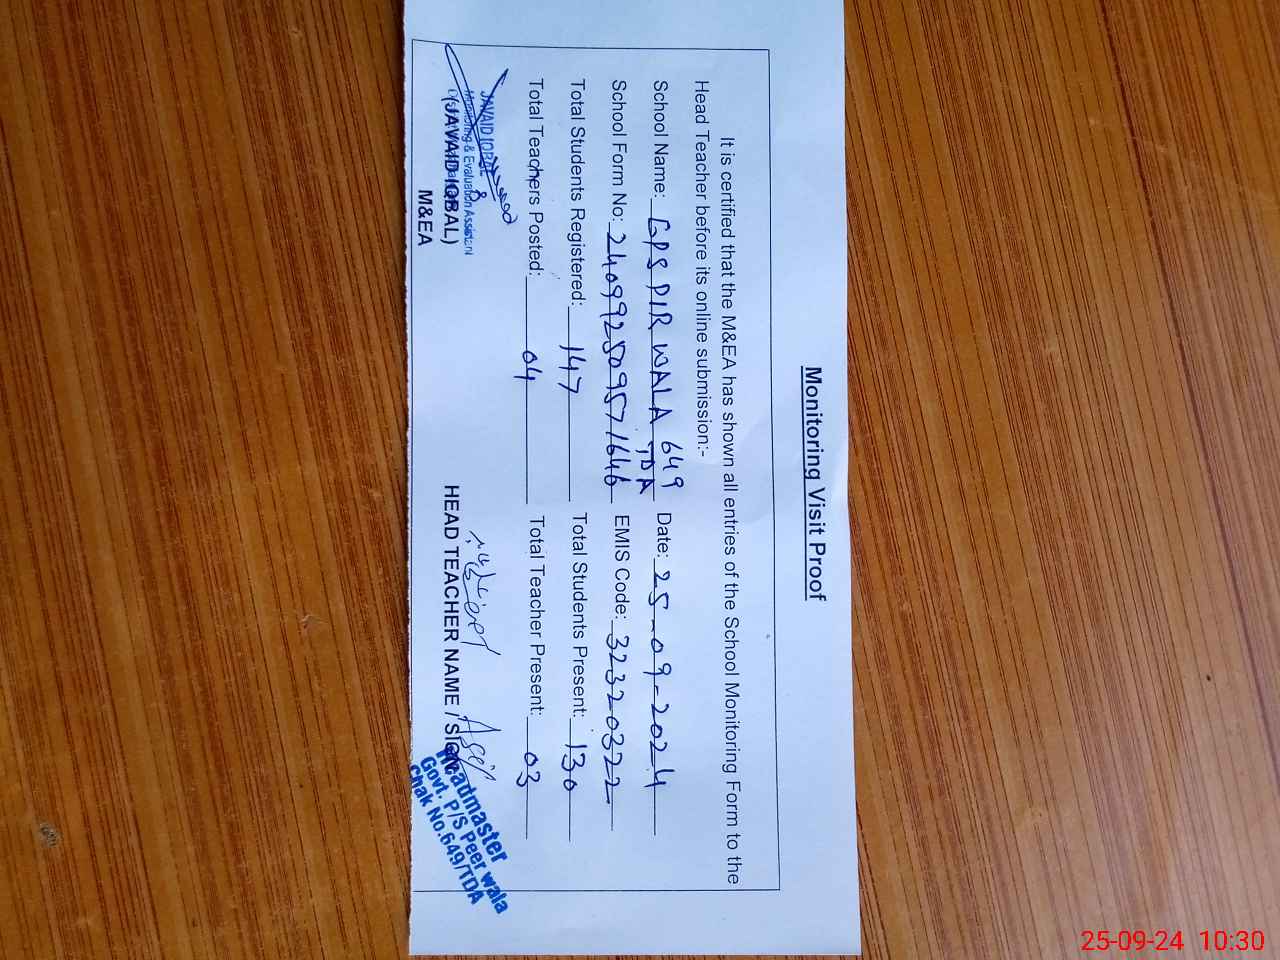 Monitoring Visit Proof
It is certified that the M&EA has shown all entries of the School Monitoring Form to the
Head Teacher before its online submission:-
School Name: GPS PIR WALA 649 TDA Date: 25-09-2024
School Form No: 240992509571646 EMIS Code: 32320322
Total Students Registered: 147 Total Students Present: 130
Total Teachers Posted: 04 Total Teacher Present: 03
JAVAID IQBAL
Monitoring & Evaluation Assistant
(JAVAID IQBAL)
M&EA
HEAD TEACHER NAME / Sign
Headmaster
Govt. P/S Peer wala
Chak No.649/TDA
25-09-24 10:30